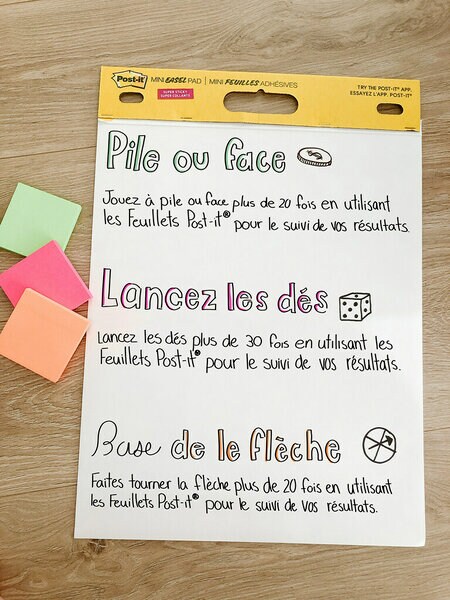 Post-it® MINI EASEL PAD | MINI FEUILLES ADHÉSIVES
SUPER STICKY
SUPER COLLANTS
TRY THE POST-IT® APP.
ESSAYEZ L'APP. POST-IT®
Pile ou face
Jouez à pile ou face plus de 20 fois en utilisant
les Feuillets Post-it® pour le suivi de vos résultats.
Lancez les dés
Lancez les dés plus de 30 fois en utilisant les
Feuillets Post-it® pour le suivi de vos résultats.
Base de le flèche
Faites tourner la flèche plus de 20 fois en utilisant
les Feuillets Post-it® pour le suivi de vos résultats.